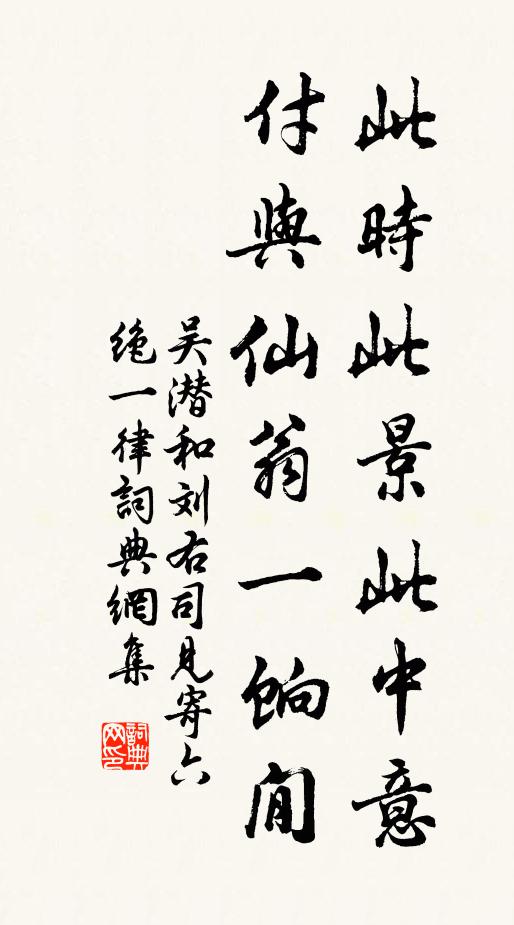 此時此景此中意
付與仙翁一餉閒
吴潜和刘右司見寄六
绝一律詞典網集
詞典
网印